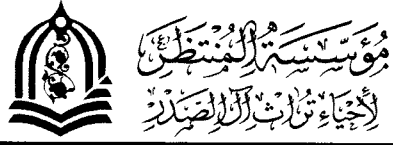 مُؤَسَّسَةُ المُنْتَظَر (ع)
لِأَحْيَاءِ تُرَاثِ آلِ الصَّدْرِ